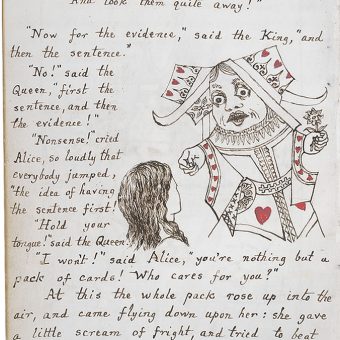 And look them quite away!"
"Now for the evidence," said the King, "and
then the sentence."
"No!" said the
Queen, "first the
sentence, and then
the evidence!"
"Nonsense!" cried
Alice, so loudly that
everybody jumped,
"the idea of having
the sentence first!
"Hold your
tongue!" said the Queen.
"I won't!" said Alice, "you're nothing but a
pack of cards! Who cares for you?"
At this the whole pack rose up into the
air, and came flying down upon her: she gave
a little scream of fright, and tried to beat